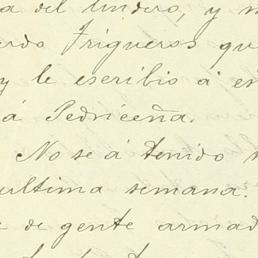 a del lindero, y m
erdo Trigueros qu
y le escribio á es
á Pedriceña.
No se á tenido n
ultima semana.
e de gente armad